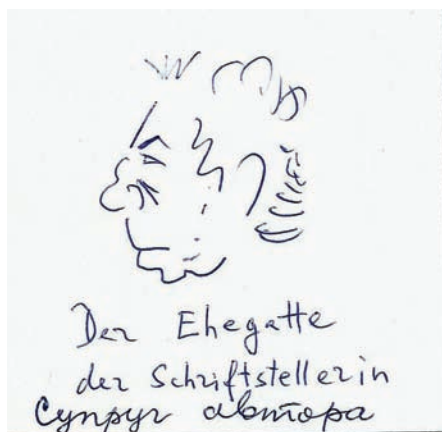 Der Ehegatte
der Schriftstellerin
Супруг автора